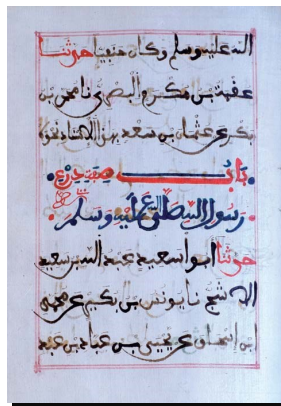 الله عليه وسلم وكان حنفيا حدثنا
عقبة بن مكرم البصري نا محمد بن
بكر عن عثمان بن سعد بهذا الاسناد نحوه
باب صفة درع
رسول الله صلى الله عليه وسلم
حدثنا ابو سعيد عبد الله بن سعيد
الاشج نا يونس بن بكير عن محمد
ابن اسحاق عن يحيى بن عباد بن عبد